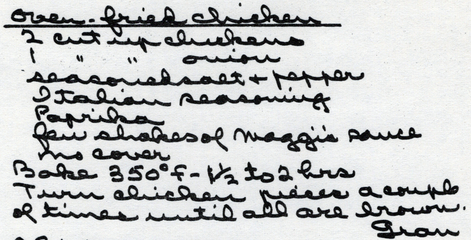 oven-fried chicken
2 cut up chickens
1 " " onion
seasoned salt + pepper
Italian seasoning
Paprika
few shakes of Maggi's sauce
no cover
Bake 350°F - 1½ to 2 hrs
Turn chicken pieces a couple
of times until all are brown.
Gran